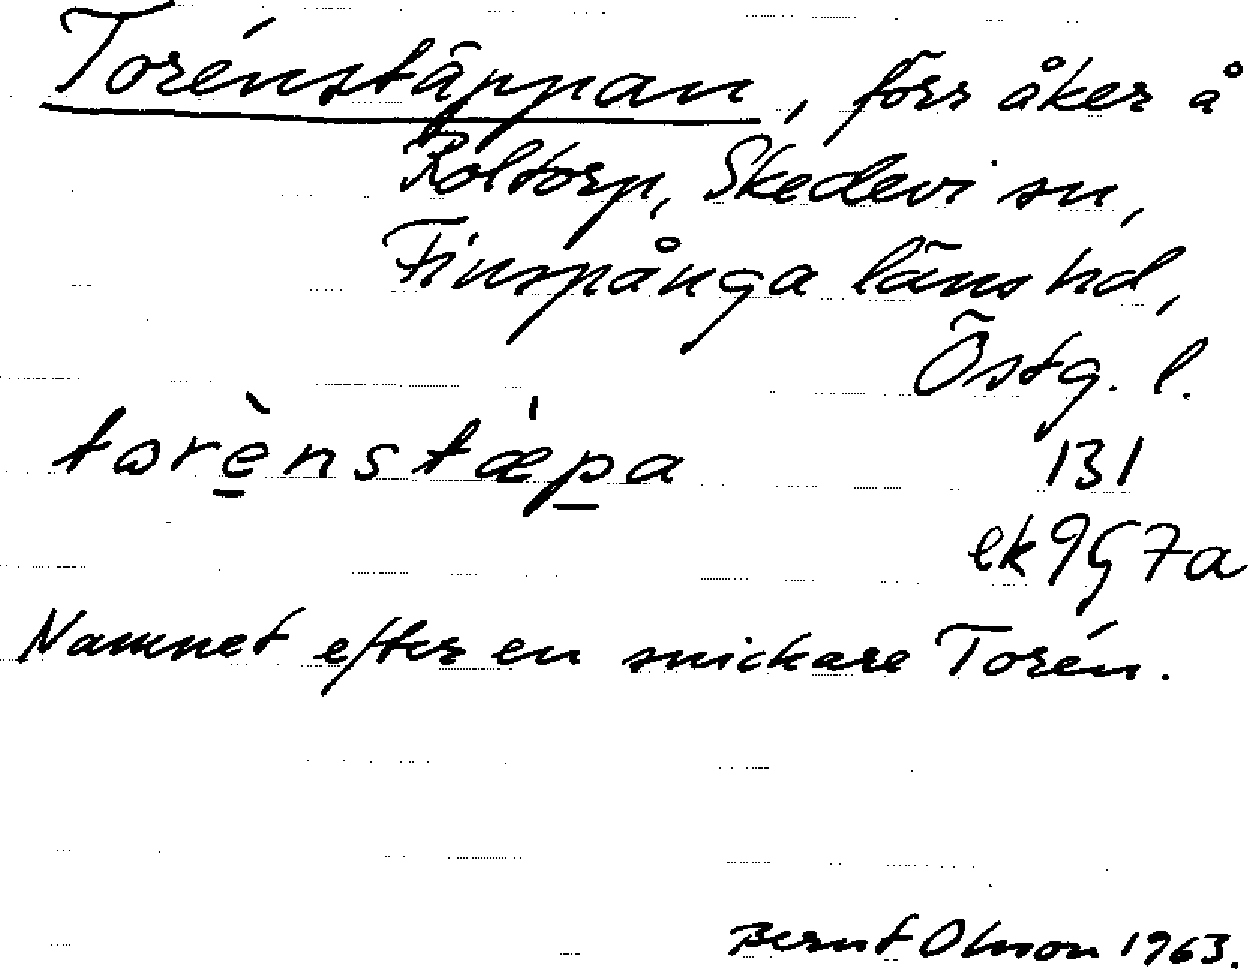 Torénstäppan, förr åker å
Roltorp, Skedevi sn,
Finspånga läns hd,
Östg. l.
torènstæ̍pa
131
ek 9G7a
Namnet efter en snickare Torén.
Bernt Olsson 1963.